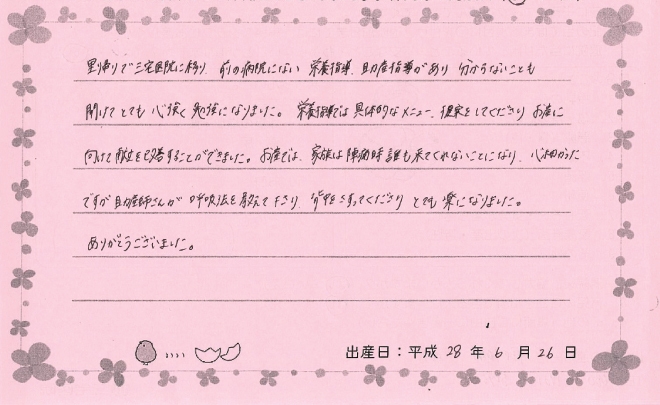 里帰りで三宅医院に移り、前の病院にない 栄養指導、助産指導があり 分からないことも
聞けて とても 心強く 勉強になりました。栄養指導では 具体的なメニュー、提案をしてくださり お産に
向けて 献立を改善することができました。お産では、家族は陣痛時 誰も 来てくれないことになり、心細かった
ですが 助産師さんが 呼吸法を教えて下さり、背中をさすってくださり とても 楽になりました。
ありがとうございました。
出産日：平成 28 年 6 月 26 日